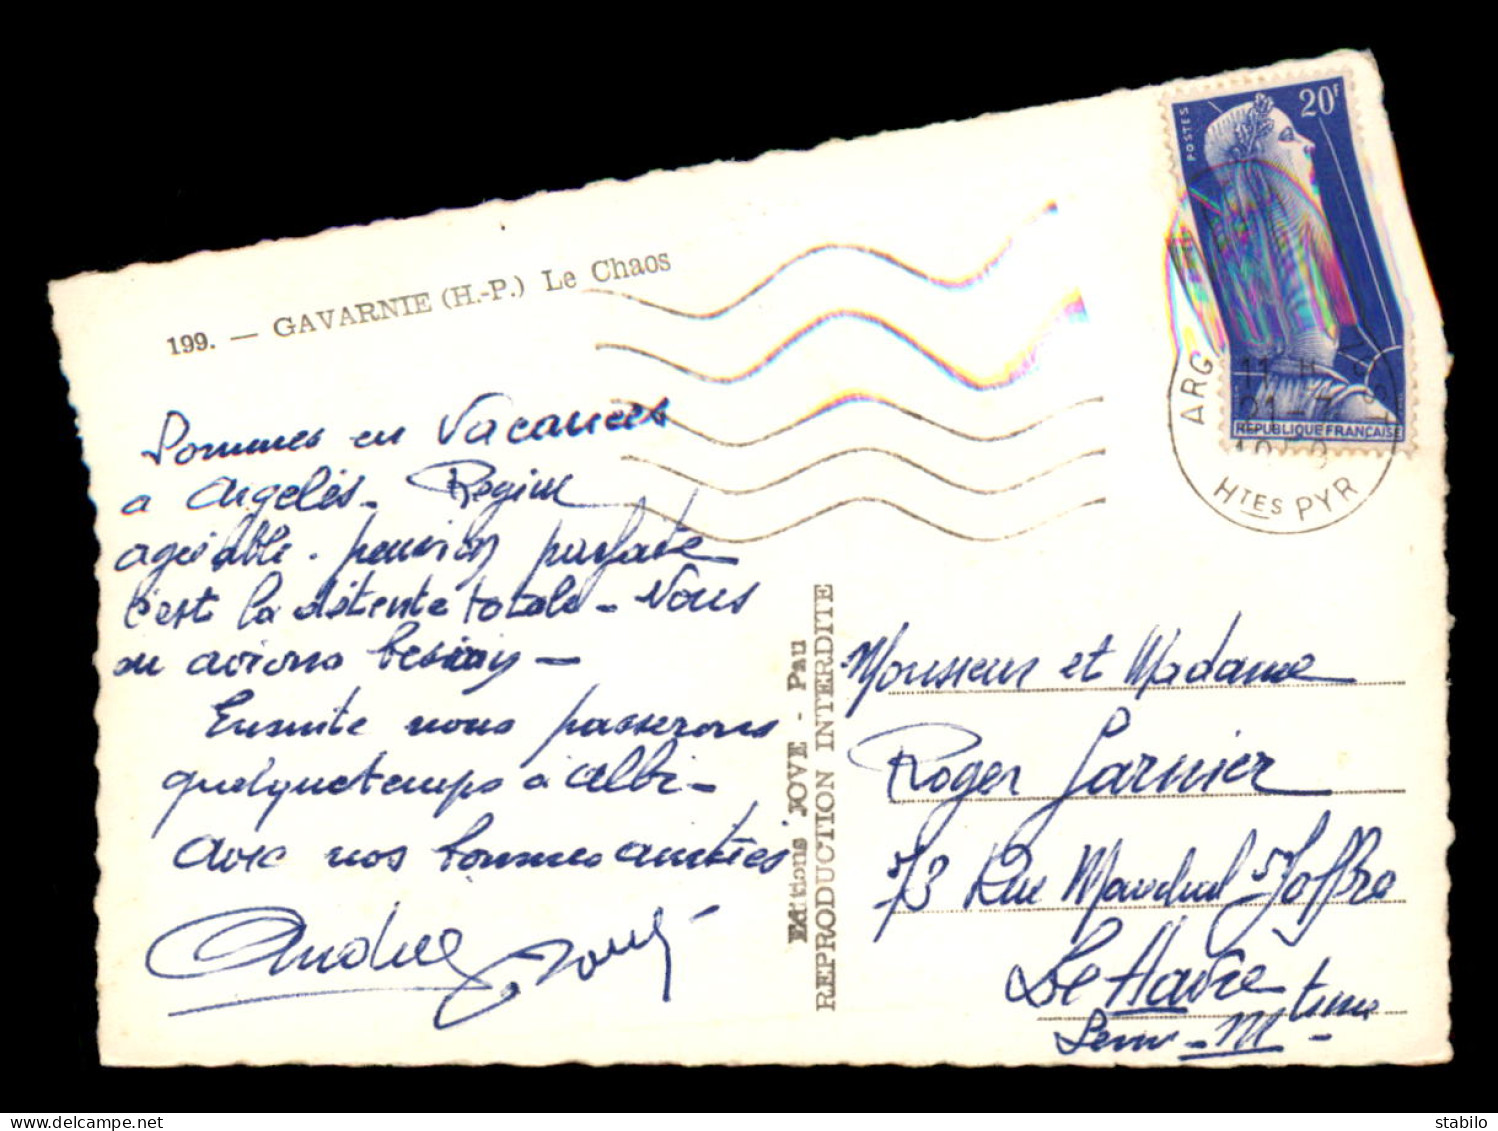 199. — GAVARNIE (H.-P.) Le Chaos
Sommes en Vacances
a Argelès - Région
agréable - pension parfaite
c'est la détente totale - Nous
en avions besoin -
Ensuite nous passerons
quelque temps à Albi -
avec nos bonnes amitiés
Andrée
Editions JOVE - Pau
REPRODUCTION INTERDITE
POSTES
20F
REPUBLIQUE FRANCAISE
ARG
11 H
21-7
1959
HTES PYR
Monsieur et Madame
Roger Garnier
73 Rue Maréchal Joffre
Le Havre
Seine-Mtime
stabilo